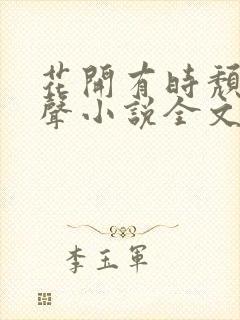 花開有時頹
聲小説全文
李玉軍